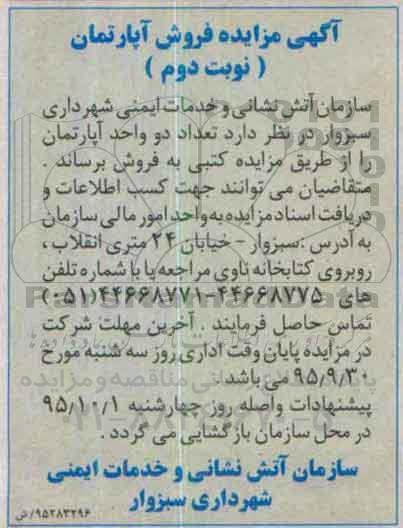 آگهی مزایده فروش آپارتمان
( نوبت دوم )
سازمان آتش نشانی و خدمات ایمنی شهرداری
سبزوار در نظر دارد تعداد دو واحد آپارتمان
را از طریق مزایده کتبی به فروش برساند .
متقاضیان می توانند جهت کسب اطلاعات و
دریافت اسناد مزایده به واحد امور مالی سازمان
به آدرس :سبزوار - خیابان ۲۴ متری انقلاب ،
روبروی کتابخانه تاوی مراجعه یا با شماره تلفن
های ۴۴۶۶۸۷۷۵-۴۴۶۶۸۷۷۱(۰۵۱)
تماس حاصل فرمایند . آخرین مهلت شرکت
در مزایده پایان وقت اداری روز سه شنبه مورخ
۹۵/۹/۳۰ می باشد .
پیشنهادات واصله روز چهارشنبه ۹۵/۱۰/۱
در محل سازمان بازگشایی می گردد .
سازمان آتش نشانی و خدمات ایمنی
شهرداری سبزوار
۹۵۲۸۳۲۹۶/ش